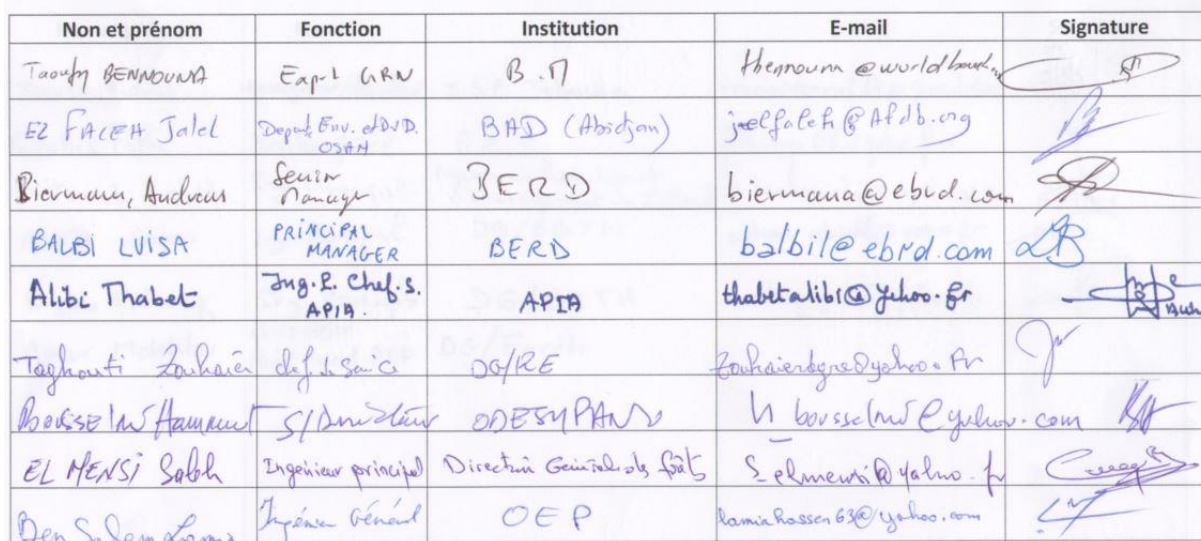 Non et prénom Fonction Institution E-mail Signature
Taoufiq BENNOUNA GRN B.M
EZ FALEH Jalel BAD (Abidjan) jelfaleh@Afdb.org
OSAN
Biermann, Andreas Senior Manager BERD biermana@ebrd.com
BALBI LUISA PRINCIPAL MANAGER BERD balbil@ebrd.com LB
Alibi Thabet Ing.P. Chef.S. APIA. APIA thabetalibi@yahoo.fr
Taghouti Zouhaier chef de service DG/RE
Housselmi S/Directeur ODESYPANO h bousselmi@yahoo.com
EL MENSI Salah Ingénieur principal Direction Générale des forêts S_elmensi@yahoo.fr
Ben Salem Lamia Ingénieur Général OEP lamiahassen63@yahoo.com